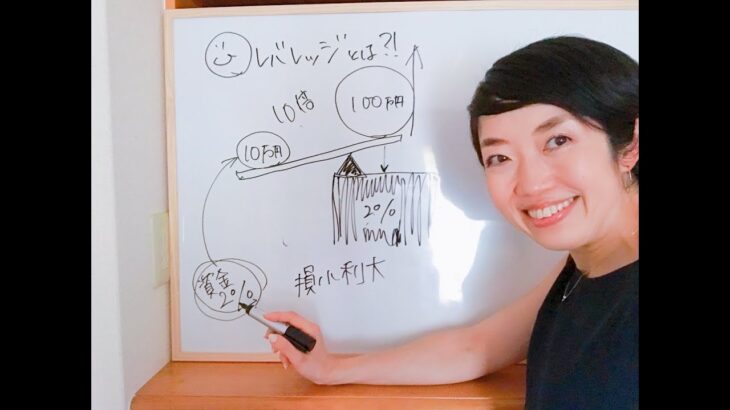 レバレッジとは?!
10倍
100万円
10万円
2%
資金
2%
損小利大